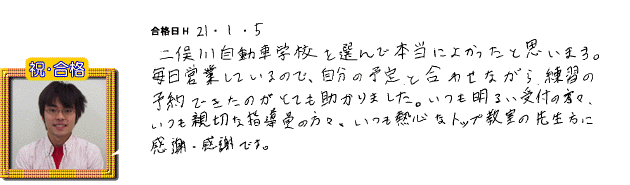 合格日 H 21・1・5
二俣川自動車学校を選んで本当によかったと思います。
毎日営業しているので、自分の予定と合わせながら練習の
予約できたのがとても助かりました。いつも明るい受付の方々、
いつも親切な指導員の方々、いつも熱心なトップ教室の先生方に
感謝・感謝です。
祝・合格